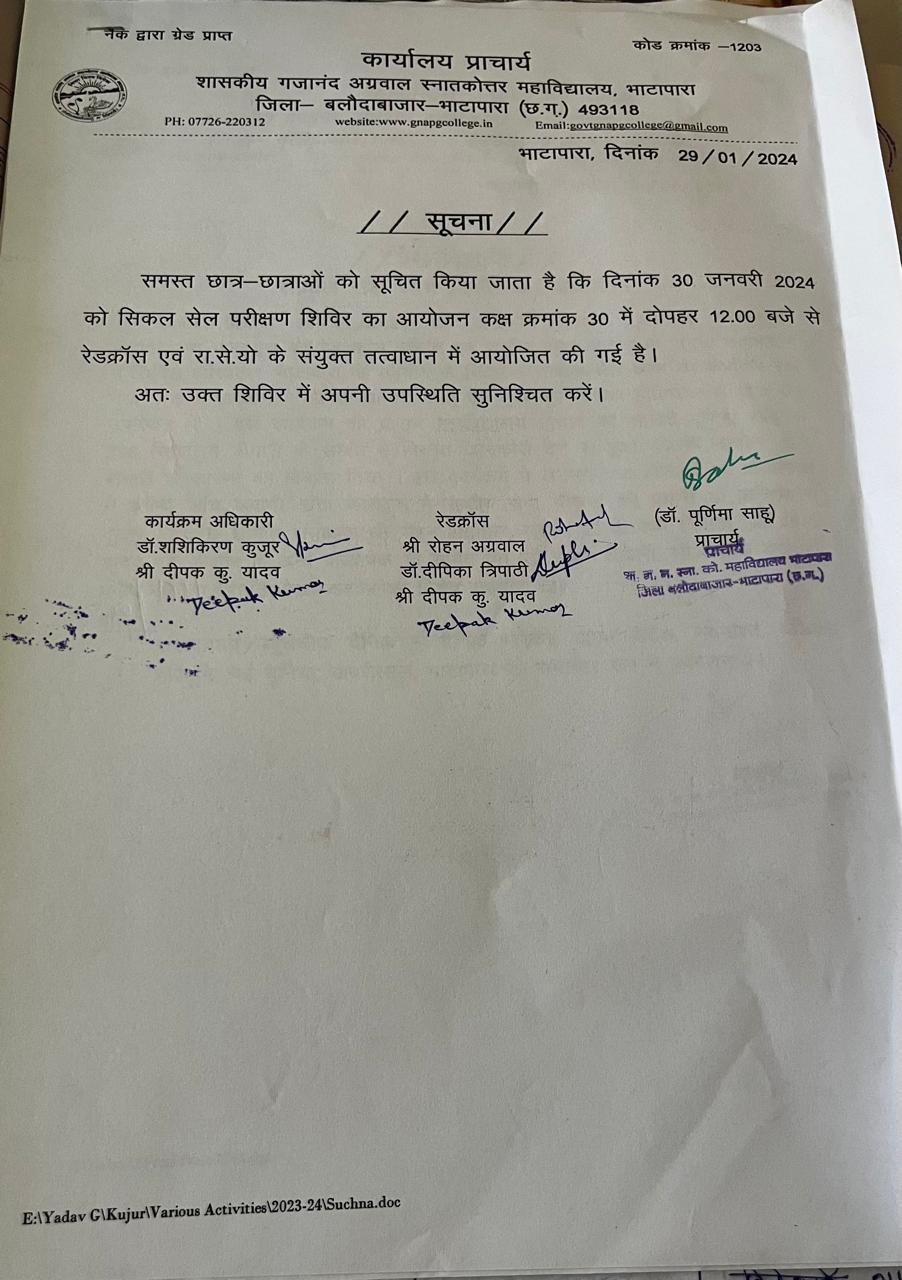 नैक द्वारा ग्रेड प्राप्त
कोड क्रमांक –1203
कार्यालय प्राचार्य
शासकीय गजानंद अग्रवाल स्नातकोत्तर महाविद्यालय, भाटापारा
जिला– बलौदाबाजार–भाटापारा (छ.ग.) 493118
PH: 07726-220312 website:www.gnapgcollege.in Email:govtgnapgcollege@gmail.com
भाटापारा, दिनांक 29/01/2024
// सूचना //
समस्त छात्र–छात्राओं को सूचित किया जाता है कि दिनांक 30 जनवरी 2024
को सिकल सेल परीक्षण शिविर का आयोजन कक्ष क्रमांक 30 में दोपहर 12.00 बजे से
रेडक्रॉस एवं रा.से.यो के संयुक्त तत्वाधान में आयोजित की गई है।
अतः उक्त शिविर में अपनी उपस्थिति सुनिश्चित करें।
कार्यक्रम अधिकारी
डॉ.शशिकिरण कुजूर
श्री दीपक कु. यादव
Deepak Kumar
रेडक्रॉस
श्री रोहन अग्रवाल
डॉ.दीपिका त्रिपाठी
श्री दीपक कु. यादव
Deepak Kumar
(डॉ. पूर्णिमा साहू)
प्राचार्य
प्राचार्य
स्ना. को. महाविद्यालय भाटापारा
जिला बलौदाबाजार-भाटापारा (छ.ग.)
E:\Yadav G\Kujur\Various Activities\2023-24\Suchna.doc